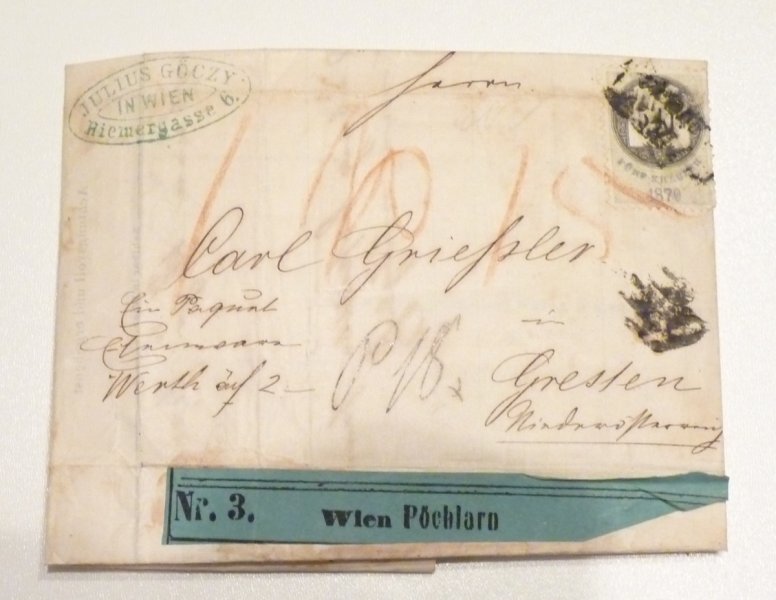 JULIUS GÖCZY
IN WIEN
Riemergasse 6.
Herrn
FÜNF KREUZER
1870
Carl Griessler
Ein Paquet
Werth auf 2 –
P 18
in
Gresten
Niederösterreich
Nr. 3. Wien Pöchlarn